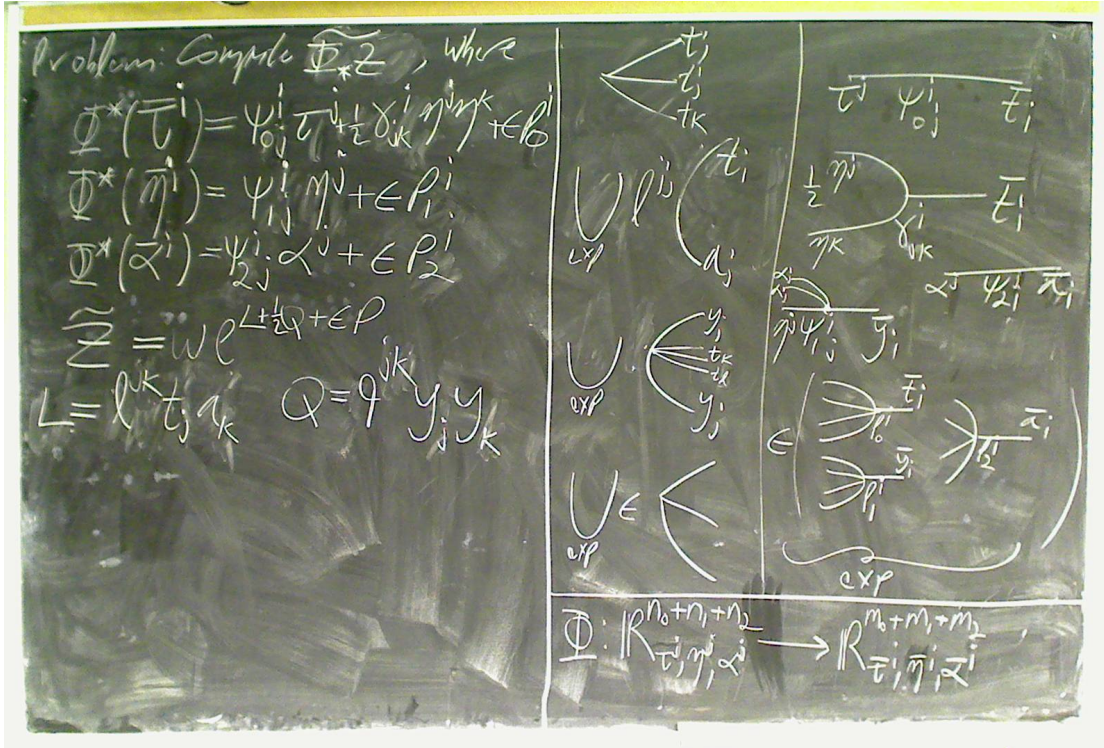 Problem: Compute \widetilde{Φ_* Z}, where
Φ^*(\bar{τ}^i) = ψ_{0j}^i τ^j + ½ γ_{jk}^i η^j η^k + ϵP_0^i
Φ^*(\bar{η}^i) = ψ_{1j}^i η^j + ϵP_1^i
Φ^*(\bar{α}^i) = ψ_{2j}^i α^j + ϵP_2^i
\widetilde{Z} = ω e^{L+½Q+ϵP}
L = l^{jk} t_j a_k Q = q^{jk} y_j y_k
t_i
t_j
t_k
⋃ l^{ij} t_i
exp a_j
⋃ y_i
t_k
exp y_j
⋃ ϵ
exp
τ^j ψ_{0j}^i \bar{t}_i
½ η^j
\bar{t}_i
η^k γ_{jk}^i
α^j ψ_{2j}^i \bar{a}_i
η^j ψ_{1j}^i \bar{y}_i
ϵ ( \bar{t}_i
P_0^i \bar{a}_i
P_2^i
\bar{y}_i
P_1^i )
exp
Φ: ℝ^{n_0+n_1+n_2}_{τ^j, η^j, α^j} ⟶ ℝ^{m_0+m_1+m_2}_{\bar{τ}^i, \bar{η}^i, \bar{α}^i}